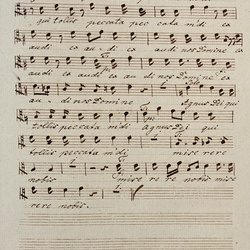 qui tollis peccata peccata mũdi ex
audi ex au - di ex audi nos Domine ex
audi ex audi ex au - di nos Domine ex
au - di nos Domine Agnus Dei qui
tollis peccata mũdi agnus Dei qui
tollis peccata mũdi misereре
nobis misere re nobis mise
rere nobis.